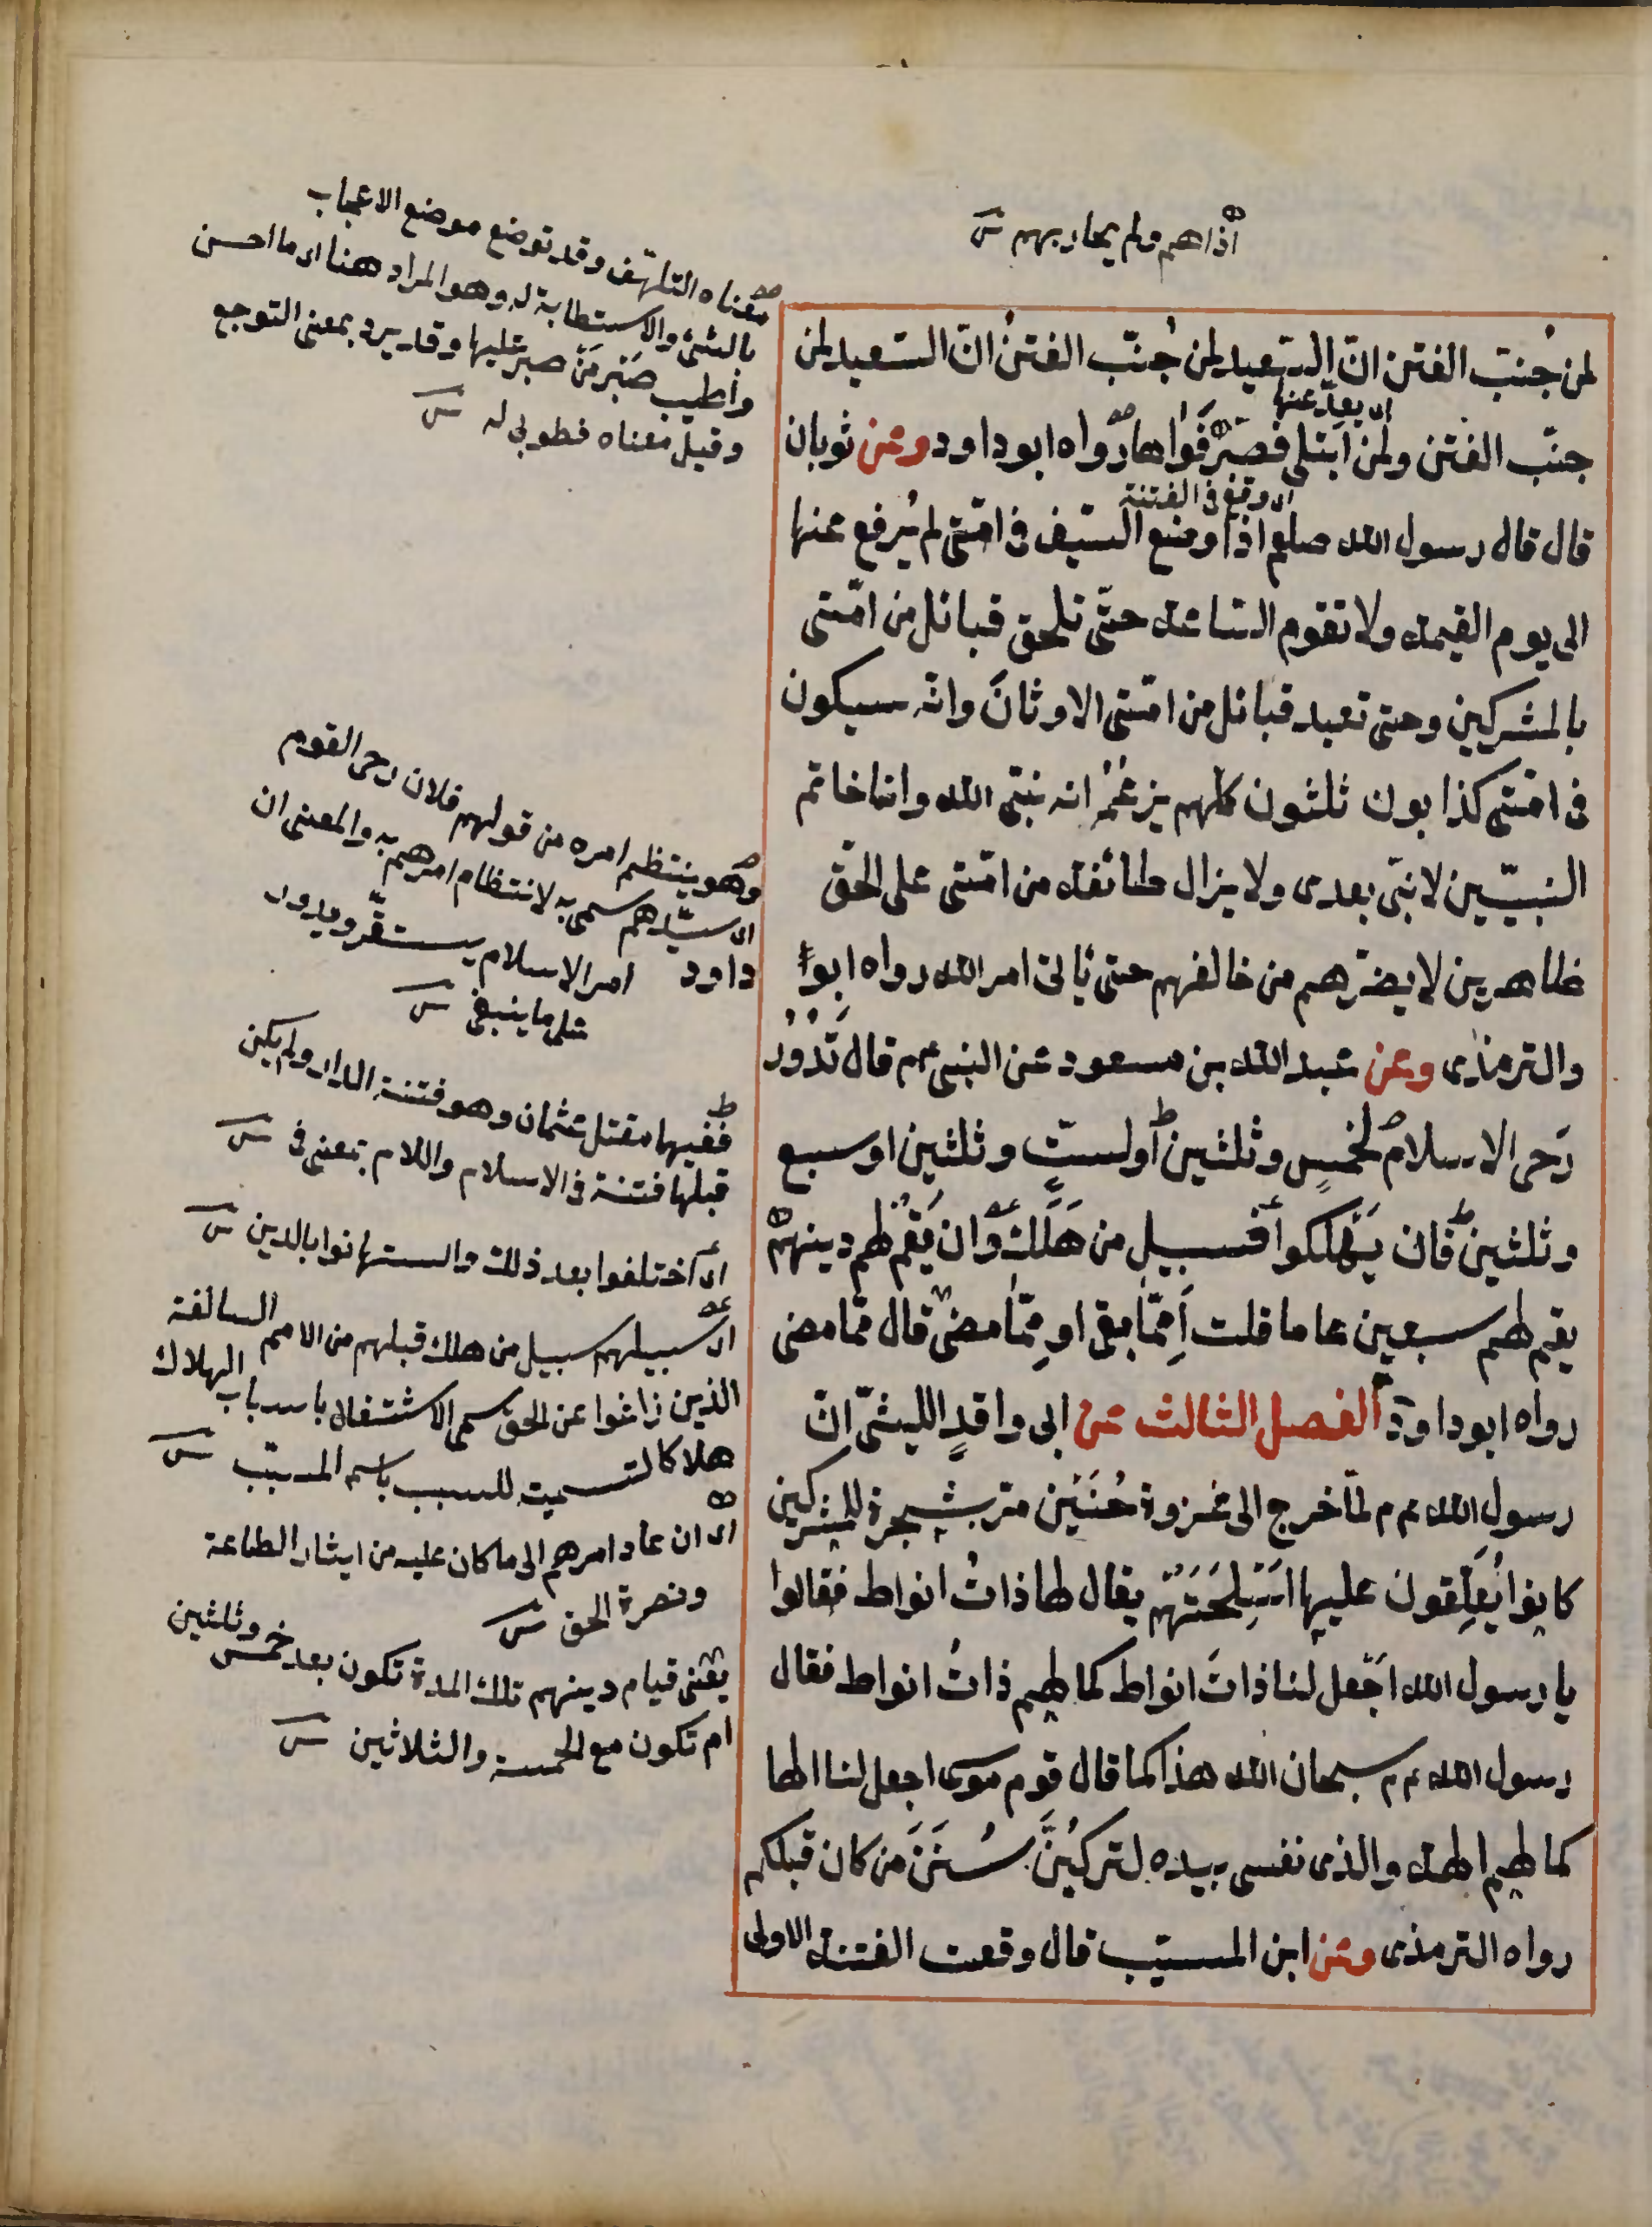 اذاهم ولم يحاربهم ش
لمن جُنّبَ الفتن انّ السّعيد لمن جُنّب الفتنُ انّ السّعيد لمن
اى بعد عنها
جنّب الفتن ولمن ابتلى فصبر فواها رواه ابو داود وعن ثوبان
اى وقع فى الفتنة
قال قال رسول الله صلعم اذا وضع السّيف فى امّتى لم يُرفع عنها
الى يوم القيمة ولا تقوم السّاعة حتّى تلحق قبائل من امّتى
بالمشركين وحتى تعبد قبائل من امّتى الاوثانَ وانّه سيكون
فى امّتى كذابون ثلثون كلّهم يزعُمُ انه نبىّ الله وانا خاتم
النبيّين لا نبىّ بعدى ولا يزال طائفة من امّتى على الحّق
ظاهرين لا يضرّهم من خالفهم حتى يأتى امر الله رواه ابو
داود
والترمذى وعن عبد الله بن مسعود عن النبى عم قال تَدُوُرُ
رَحى الاسلام لخمسٍ وثلثين أو لستٍّ وثلثين او سبع
وثلثين فان يَهْلكوا فسبيل من هَلَكَ وان يَقُمْ لهم دينهم
يقم لهم سبعين عاما قلت أَمِمّا بقى او مِمّا مضى قال ممّا مضى
رواه ابو داود الفصل الثالث عن ابى واقدٍ الليثىّ انّ
رسول الله عم لمّا خرج الى غزوة حُنَيْن مرّ بشجرة للمشركين
كانوا يُعَلِّقون عليها اَسْلِحَتَهُمْ يقال لها ذاتُ انواط فقالوا
يا رسول الله اجْعل لنا ذاتَ انواط كما لهم ذاتُ انواط فقال
رسول الله عم سبحان الله هذا كما قال قوم موسى اجعل لنا الها
كما لهم الهة والذى نفسى بيده لتركبُنَّ سُنَنَ من كان قبلكم
رواه الترمذى وعن ابن المسيّب قال وقعت الفتنة الاولى
معناه التلهّف وقد توضع موضع الاعجاب
بالشئ والاستطابة له وهو المراد ههنا اى ما احسن
واطيب صَبْر مَنْ صبر عليها وقد يرد بمعنى التوجع
وقيل معناه فطوبى له ش
وهو ينتظم امره من قولهم فلان رحى القوم
اى سيّدهم سمى به لانتظام امرهم به والمعنى ان
امر الاسلام يستقّر ويدور
على ما ينبغى ش
ففيها مقتل عثمان وهو فتنة الدار ولم يكن
قبلها فتنة فى الاسلام واللام بمعنى فى ش
اى اختلفوا بعد ذلك واستهانوا بالدين ش
اى سبيلهم سبيل من هلك قبلهم من الامم السالفة
الذين زاغوا عن الحق سمى الاشتغال باسباب الهلاك
هلاكا لتسمية للسبب باسم المسبّب ش
اى ان عاد امرهم الى ما كان عليه من ايثار الطاعة
ونصرة الحق ش
يعنى قيام دينهم تلك المدة تكون بعد خمس وثلثين
ام تكون مع الخمسة والثلاثين ش